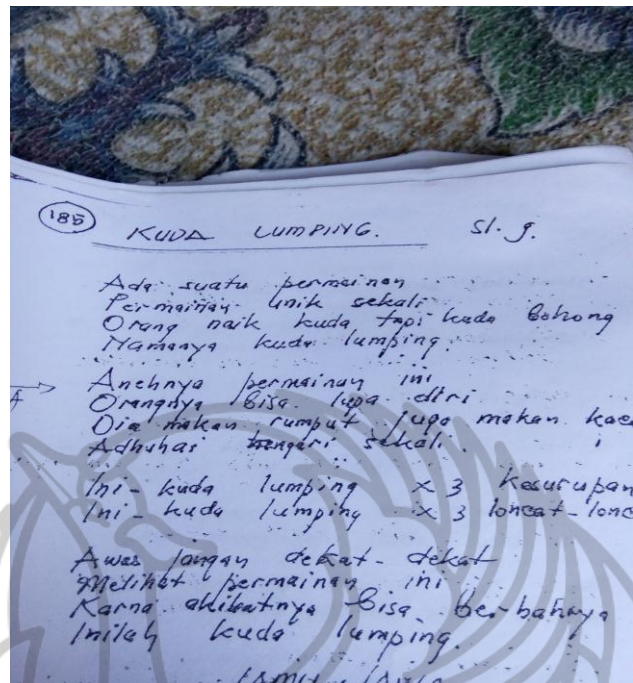 185 KUDA LUMPING. Sl. g.
Ada suatu permainan
Permainan unik sekali
Orang naik kuda tapi kuda Bohong
Namanya kuda lumping.
Anehnya permainan ini
Orangnya Bisa lupa diri
Dia makan rumput juga makan
Adhuhai sekali.
Ini - kuda lumping x 3 Kesurupan
Ini - kuda lumping x 3 loncat -
Awas jangan dekat - dekat
Melihat permainan ini
Karna akibatnya Bisa berbahaya
Inilah kuda lumping.